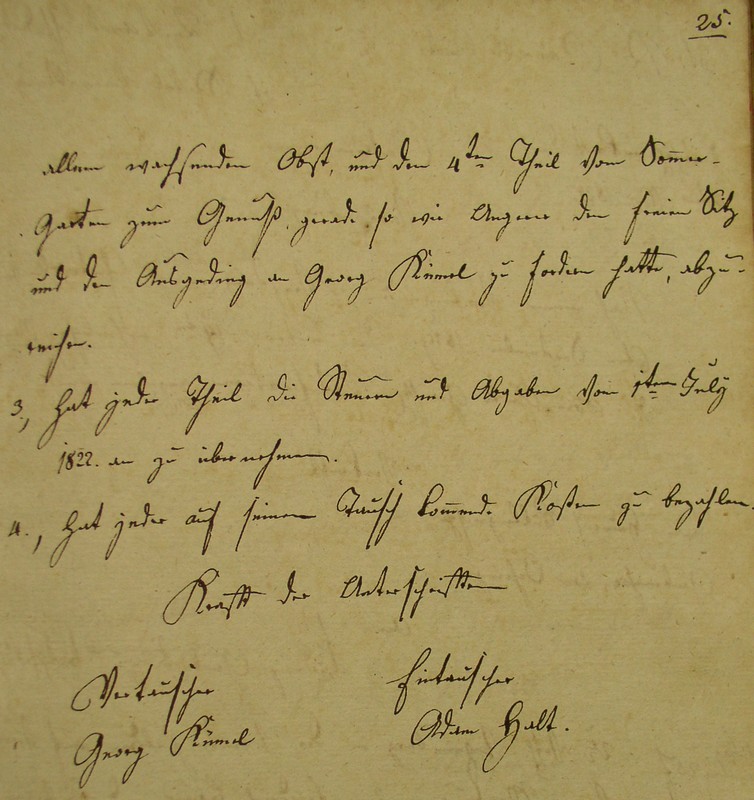 25.
allem wachsenden Obst, und den 4ten Theil vom Sommer-
Garten zum Genuß, gerade so wie Ungerer den freien Sitz
und den Ausgeding an Georg Kümel zu fordern hatte, abzu-
reichen.
3, Hat jeder Theil die Steuern und Abgaben vom 1ten July
1822. an zu übernehmen.
4., Hat jeder auf seinen Tausch kommende Kosten zu bezahlen.
Krafft der Unterschriften
Vertauscher
Georg Kümel
Eintauscher
Adam Halt.